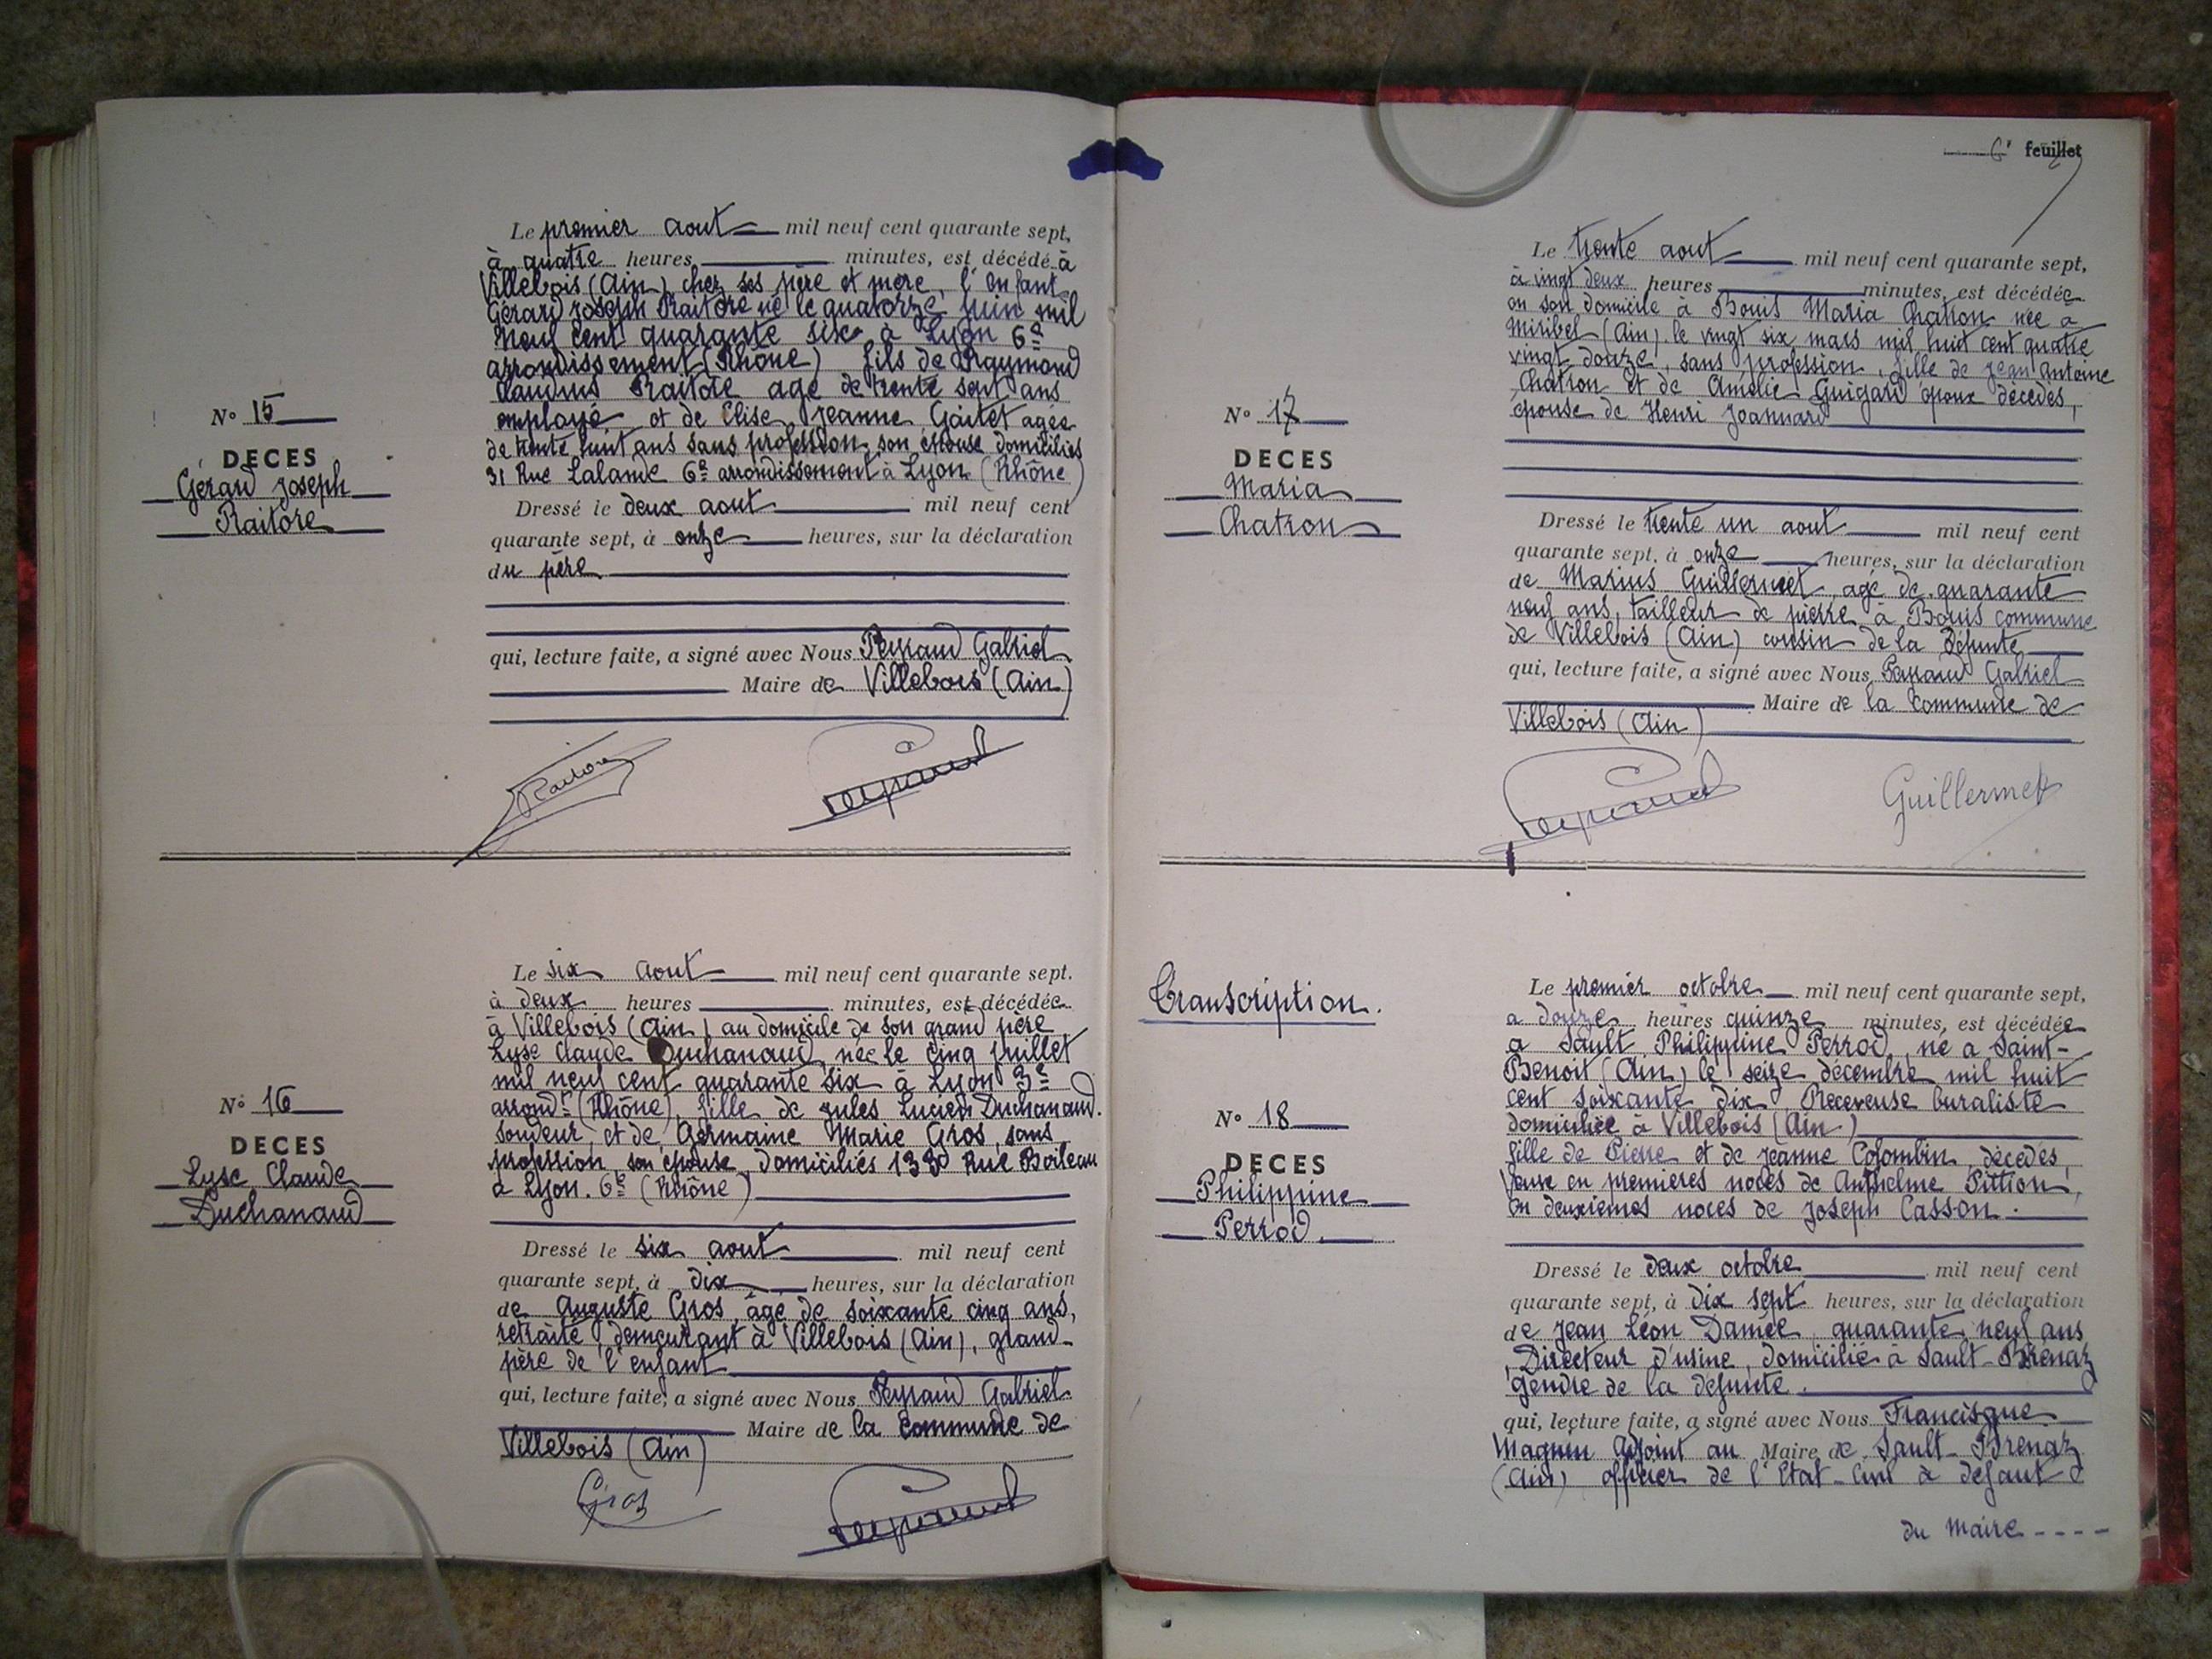 Le premier aout mil neuf cent quarante sept,
à quatre heures minutes, est décédé à
Villebois (Ain) chez ses père et mère, l'enfant
Gérard Joseph Raitore né le quatorze juin mil
neuf cent quarante six à Lyon 6e
arrondissement (Rhône) fils de Raymond
Claudius Raitore agé de trente sept ans
employé et de Elise Jeanne Gaitet agée
de trente huit ans sans profession son épouse domiciliés
31 Rue Lalande 6e arrondissement à Lyon (Rhône)
N° 15
DECES
Gérard Joseph
Raitore
Dressé le deux aout mil neuf cent
quarante sept, à onze heures, sur la déclaration
du père
qui, lecture faite, a signé avec Nous Peyraud Gabriel
Maire de Villebois (Ain)
Raitore
Peyraud
Le six aout mil neuf cent quarante sept.
à deux heures minutes, est décédée
à Villebois (Ain) au domicile de son grand père
Lyse Claude Duchanaud, née le cinq juillet
mil neuf cent quarante six à Lyon 3e
arrondt (Rhône), fille de Jules Lucien Duchanaud.
soudeur, et de Germaine Marie Gros, sans
profession, son épouse, domiciliés 133 Rue Boileau
à Lyon. 6e (Rhône)
N° 16
DECES
Lyse Claude
Duchanaud
Dressé le six aout mil neuf cent
quarante sept, à dix heures, sur la déclaration
de Auguste Gros, âgé de soixante cinq ans,
retraité, demeurant à Villebois (Ain), grand-
père de l'enfant
qui, lecture faite, a signé avec Nous Peyraud Gabriel
Maire de la Commune de
Villebois (Ain)
Gros
Peyraud
6e feuillet
Le trente aout mil neuf cent quarante sept,
à vingt deux heures minutes, est décédée
en son domicile à Bouis Maria Chatron née à
Miribel (Ain) le vingt six mars mil huit cent quatre
vingt douze, sans profession, fille de Jean Antoine
Chatron et de Amélie Guigard époux décédés,
épouse de Henri Joannard
N° 17
DECES
Maria
Chatron
Dressé le trente un aout mil neuf cent
quarante sept, à onze heures, sur la déclaration
de Marius Guillermet, agé de quarante
neuf ans, tailleur de pierre à Bouis commune
de Villebois (Ain) cousin de la défunte
qui, lecture faite, a signé avec Nous Peyraud Gabriel
Maire de la Commune de
Villebois (Ain)
Peyraud
Guillermet
Transcription.
Le premier octobre mil neuf cent quarante sept,
à douze heures quinze minutes, est décédée
à Sault Philippine Perrod, né à Saint-
Benoit (Ain) le seize décembre mil huit
cent soixante dix Receveuse buraliste
domiciliée à Villebois (Ain)
fille de Pierre et de Jeanne Colombin, décédés,
Veuve en premières noces de Anthelme Pittion,
En deuxièmes noces de Joseph Casson.
N° 18
DECES
Philippine
Perrod.
Dressé le deux octobre mil neuf cent
quarante sept, à dix sept heures, sur la déclaration
de Jean Léon Damée quarante neuf ans
, Directeur d'usine, domicilié à Sault-Brénaz
gendre de la défunte.
qui, lecture faite, a signé avec Nous Francisque
Magnin Adjoint au Maire de Sault-Brenaz
(Ain) officier de l'Etat-Civil à défaut
du Maire - - - -